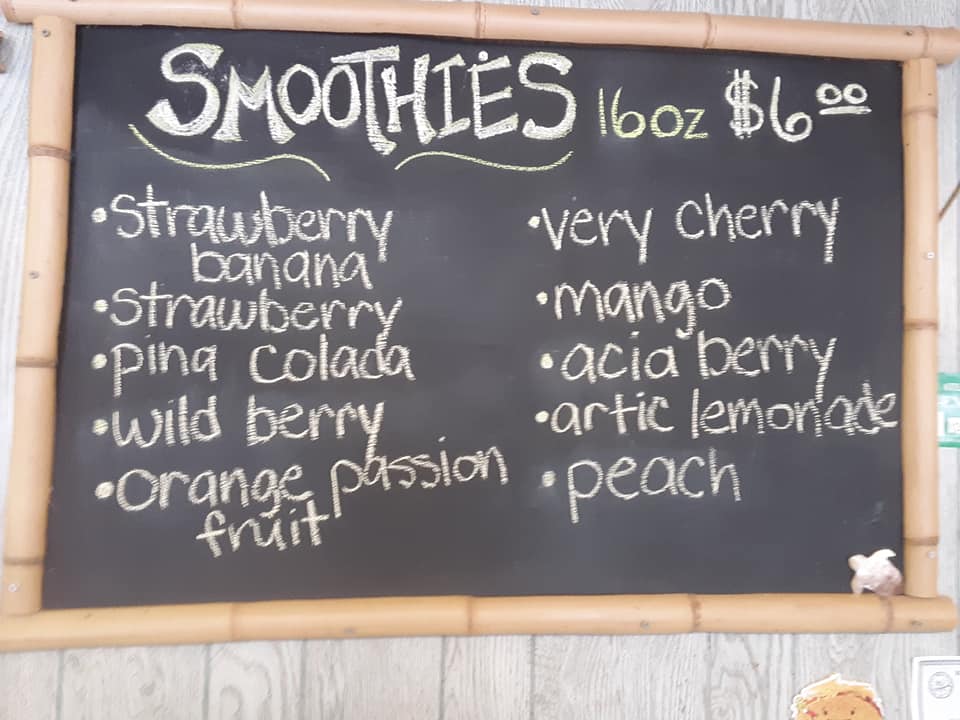 SMOOTHIES 16oz $6.00
•Strawberry
banana
•Strawberry
•pina colada
•wild berry
•orange passion
fruit
•very cherry
•mango
•acia berry
•artic lemonade
•peach